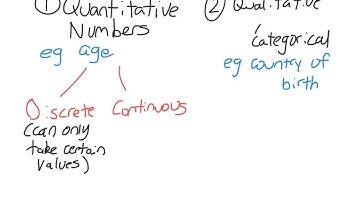 ① Quantitative
Numbers
eg age
Discrete
(can only
take certain
values)
Continuous
② Qualitative
categorical
eg country of
birth